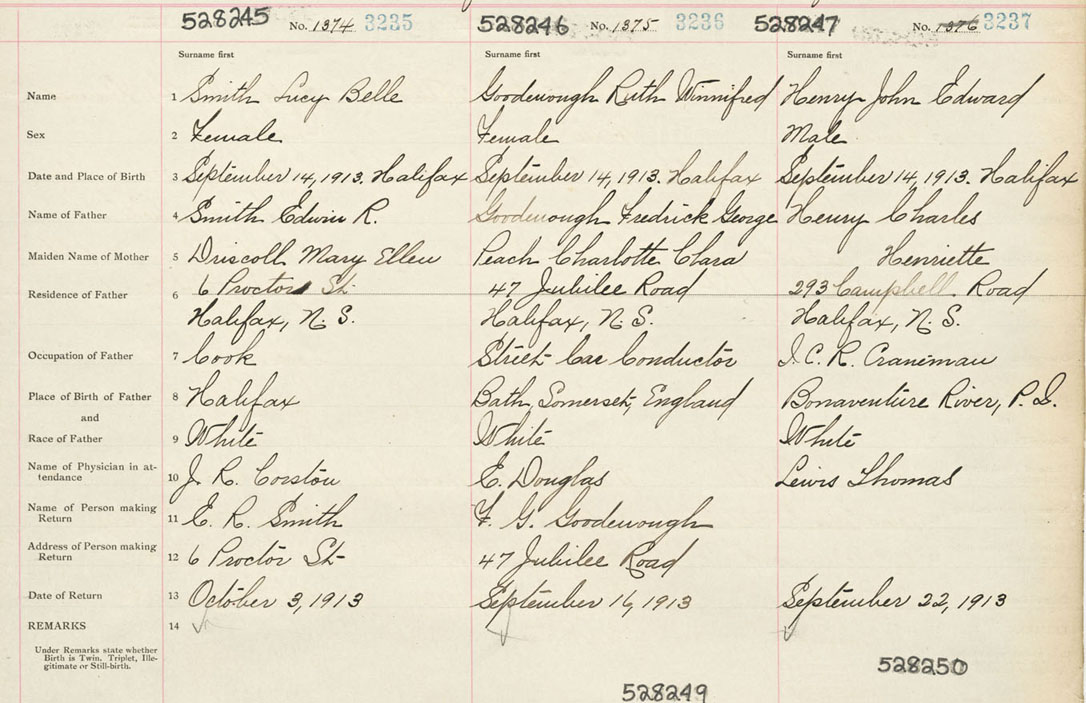 528245 No. 1374 3235 528246 No. 1375 3236 528247 No. 1376 3237
Surname first Surname first Surname first
Name 1 Smith Lucy Belle Goodenough Ruth Winnifred Henry John Edward
Sex 2 Female Female Male
Date and Place of Birth 3 September 14, 1913. Halifax September 14, 1913. Halifax September 14, 1913. Halifax
Name of Father 4 Smith Edwin R. Goodenough Fredrick George Henry Charles
Maiden Name of Mother 5 Driscoll Mary Ellen Peach Charlotte Clara Henriette
Residence of Father 6 6 Proctor St. 47 Jubilee Road 293 Campbell Road
Halifax, N. S. Halifax, N. S. Halifax, N. S.
Occupation of Father 7 Cook Street Car Conductor I. C. R. Craneman
Place of Birth of Father 8 Halifax Bath, Somerset, England Bonaventure River, P. Q.
and
Race of Father 9 White White White
Name of Physician in at-
tendance 10 J. R. Corston E. Douglas Lewis Thomas
Name of Person making
Return 11 E. R. Smith F. G. Goodenough
Address of Person making
Return 12 6 Proctor St 47 Jubilee Road
Date of Return 13 October 3, 1913 September 16, 1913 September 22, 1913
REMARKS 14
Under Remarks state whether
Birth is Twin, Triplet, Ille-
gitimate or Still-birth.
528249 528250